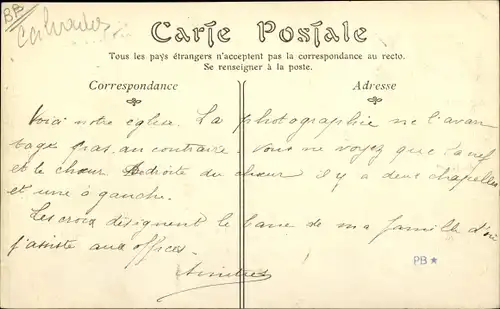 BB
Calvados
Carte Postale
Tous les pays étrangers n'acceptent pas la correspondance au recto.
Se renseigner à la poste.
Correspondance
Adresse
Voici notre église. La photographie ne l'avan
tage pas au contraire. Vous ne voyez que la nef
et le chœur. A droite du chœur il y a deux chapelles
et une à gauche.
Les croix désignent le banc de ma famille d'où
j'assiste aux offices.
PB★